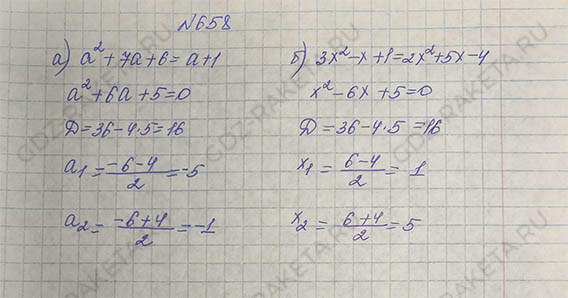 N658
а) a² + 7a + 6 = a + 1
a² + 6a + 5 = 0
D = 36 - 4·5 = 16
a₁ = (-6 - 4)/2 = -5
a₂ = (-6 + 4)/2 = -1
б) 3x² - x + 1 = 2x² + 5x - 4
x² - 6x + 5 = 0
D = 36 - 4·5 = 16
x₁ = (6 - 4)/2 = 1
x₂ = (6 + 4)/2 = 5
GDZ-RAKETA.RU